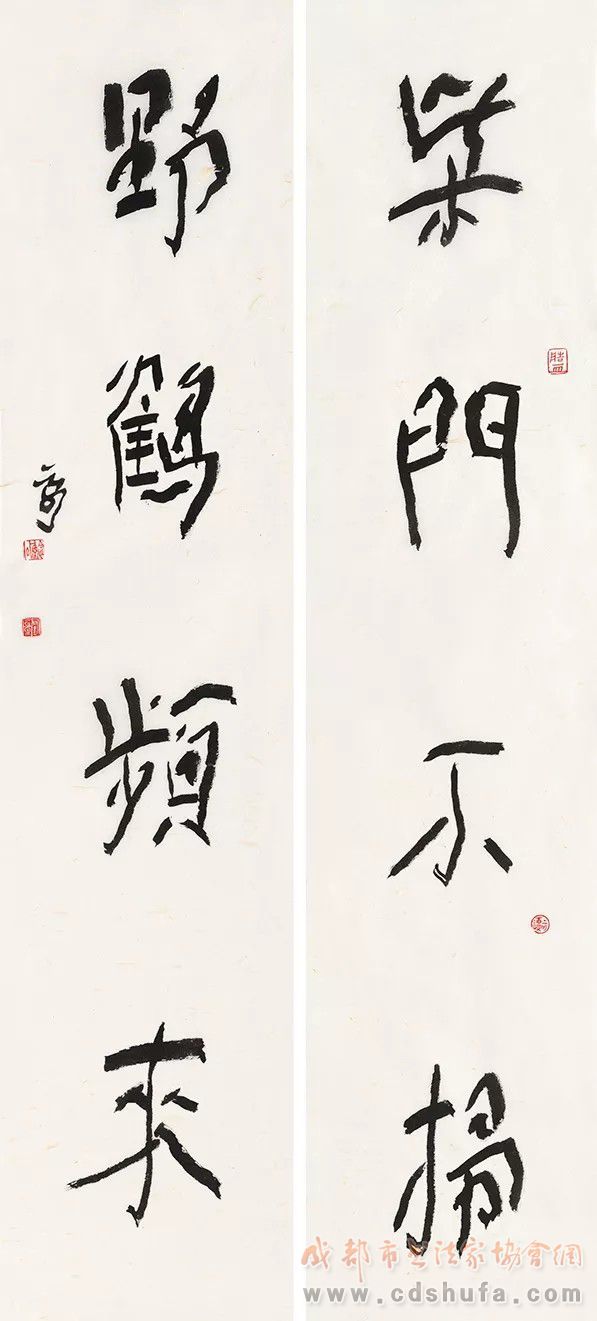 柴門不掃
野鶴頻來
成都市书法家協會網
www.cdshufa.com